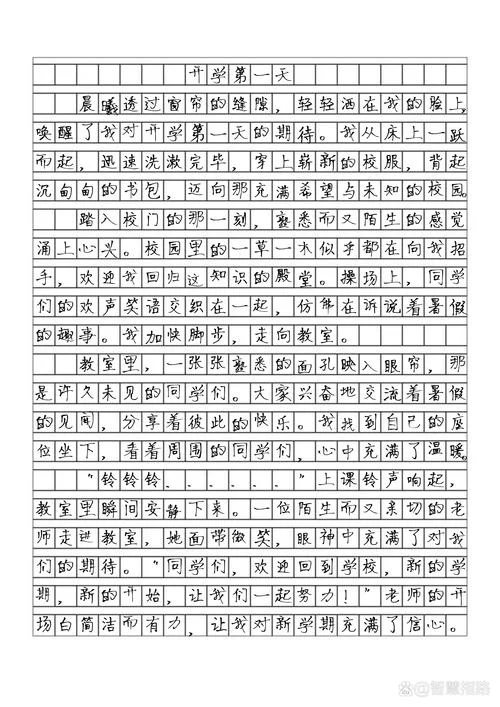 开学第一天
晨曦透过窗帘的缝隙，轻轻洒在我的脸上，
唤醒了我对开学第一天的期待。我从床上一跃
而起，迅速洗漱完毕，穿上崭新的校服，背起
沉甸甸的书包，迈向那充满希望与未知的校园。
踏入校门的那一刻，熟悉而又陌生的感觉
涌上心头。校园里的一草一木似乎都在向我招
手，欢迎我回归这知识的殿堂。操场上，同学
们的欢声笑语交织在一起，仿佛在诉说着暑假
的趣事。我加快脚步，走向教室。
教室里，一张张熟悉的面孔映入眼帘，那
是许久未见的同学们。大家兴奋地交流着暑假
的见闻，分享着彼此的快乐。我找到自己的座
位坐下，看着周围的同学们，心中充满了温暖。
“铃铃铃、、、、、、”上课铃声响起，
教室里瞬间安静下来。一位陌生而又亲切的老
师走进教室，她面带微笑，眼神中充满了对我
们的期待。“同学们，欢迎回到学校，新的学
期，新的开始，让我们一起努力！”老师的开
场白简洁而有力，让我对新学期充满了信心。
智慧指路